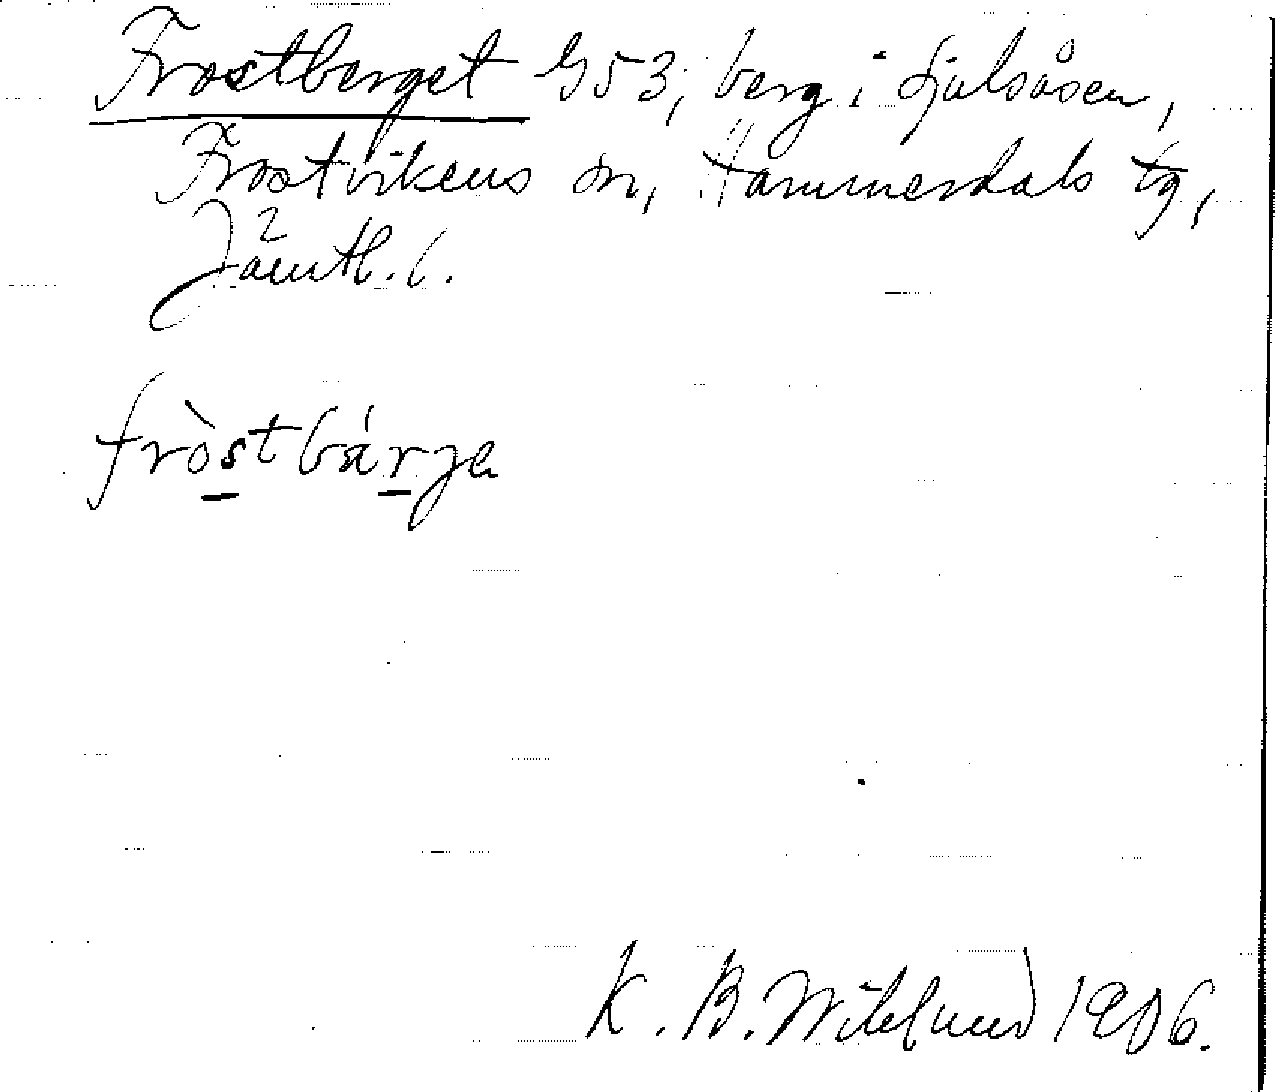 Frostberget G53; berg i Gjulsåsen,
Frostvikens sn, Hammerdals tg,
Jämtl. l.
fròstbárja
K. B. Wiklund 1906.